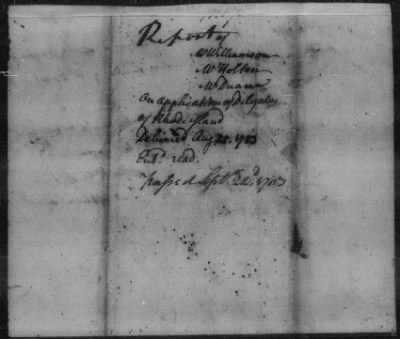 Report of
Mr Williamson
Mr Holten
Mr Duane
On application of Delegates
of Rhode island
Delivered Aug 25. 1783
Entd. read.
Passed Septr. 22d. 1783